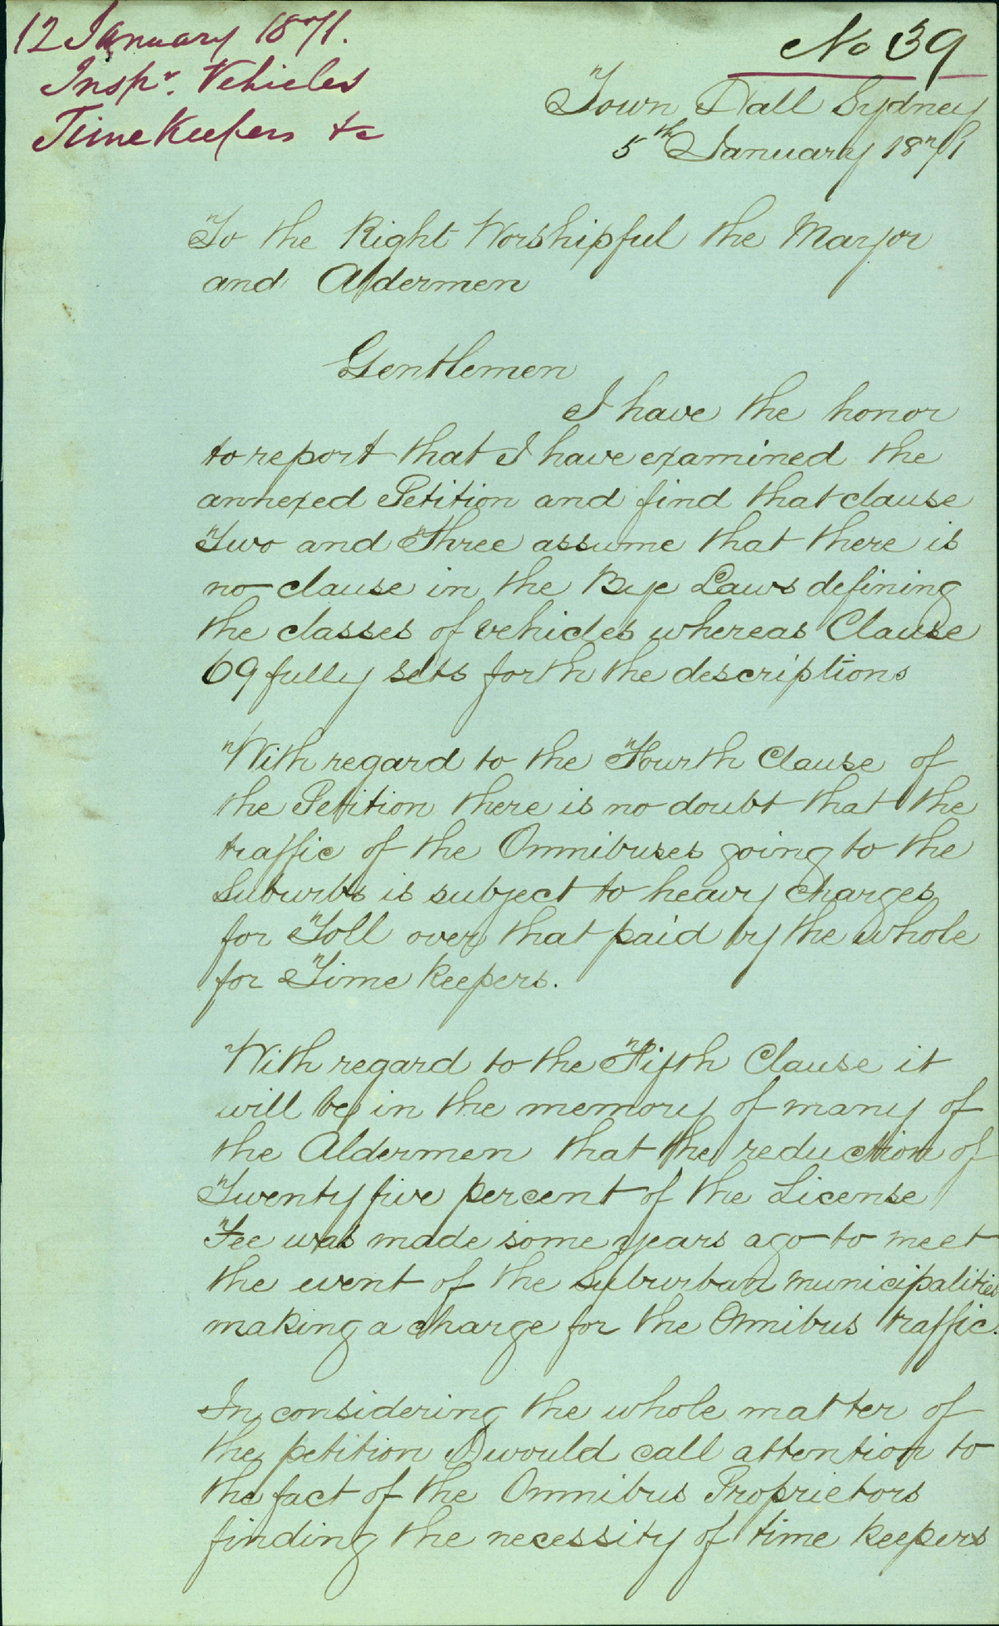 12 January 1871.
Inspr. Vehicles
Time Keepers &c
No 39
Town Hall Sydney
5th January 1871
To the Right Worshipful the Mayor
and Aldermen
Gentlemen
I have the honor
to report that I have examined the
annexed Petition and find that clause
Two and Three assume that there is
no clause in the Bye Laws defining
the classes of vehicles whereas Clause
69 fully sets forth the descriptions
With regard to the Fourth Clause of
the Petition there is no doubt that the
traffic of the Omnibuses going to the
Suburbs is subject to heavy charges
for Toll over that paid by the whole
for Time Keepers.
With regard to the Fifth Clause it
will be in the memory of many of
the Aldermen that the reduction of
Twenty five percent of the License
Fee was made some years ago to meet
the event of the Suburban Municipalities
making a charge for the Omnibus traffic.
In considering the whole matter of
the petition I would call attention to
the fact of the Omnibus Proprietors
finding the necessity of time keepers